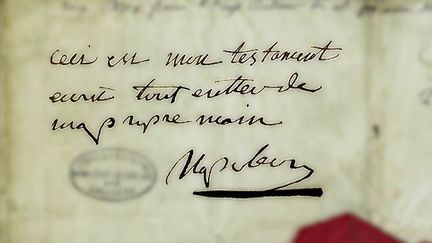 ceci est mon testament
ecrit tout entier de
ma propre main
Napoleon